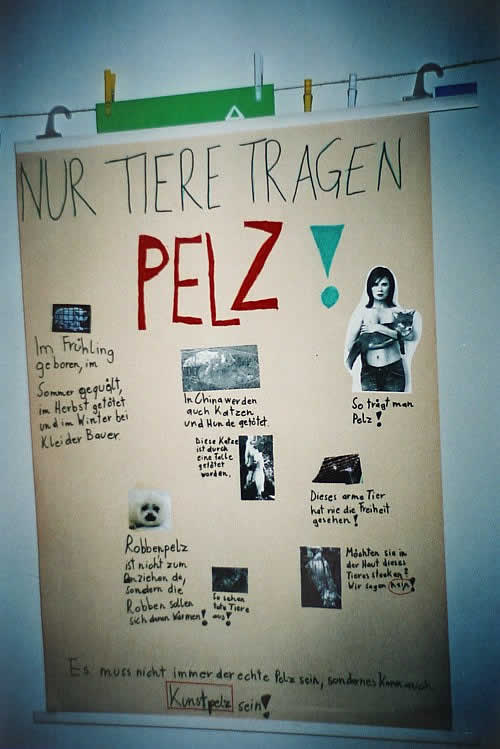 NUR TIERE TRAGEN
PELZ!
Im Frühling
geboren, im
Sommer gequält,
im Herbst getötet
und im Winter bei
Kleider Bauer.
In China werden
auch Katzen
und Hunde getötet.
So trägt man
Pelz!
Diese Katze
ist durch
eine Falle
getötet
worden.
Dieses arme Tier
hat nie die Freiheit
gesehen!
Robbenpelz
ist nicht zum
Anziehen da,
sondern die
Robben sollen
sich daran wärmen!
So sehen
tote Tiere
aus!
Möchten sie in
der Haut dieses
Tieres stecken?
Wir sagen Nein!
Es muss nicht immer der echte Pelz sein, sondern es kann auch
Kunstpelz sein!